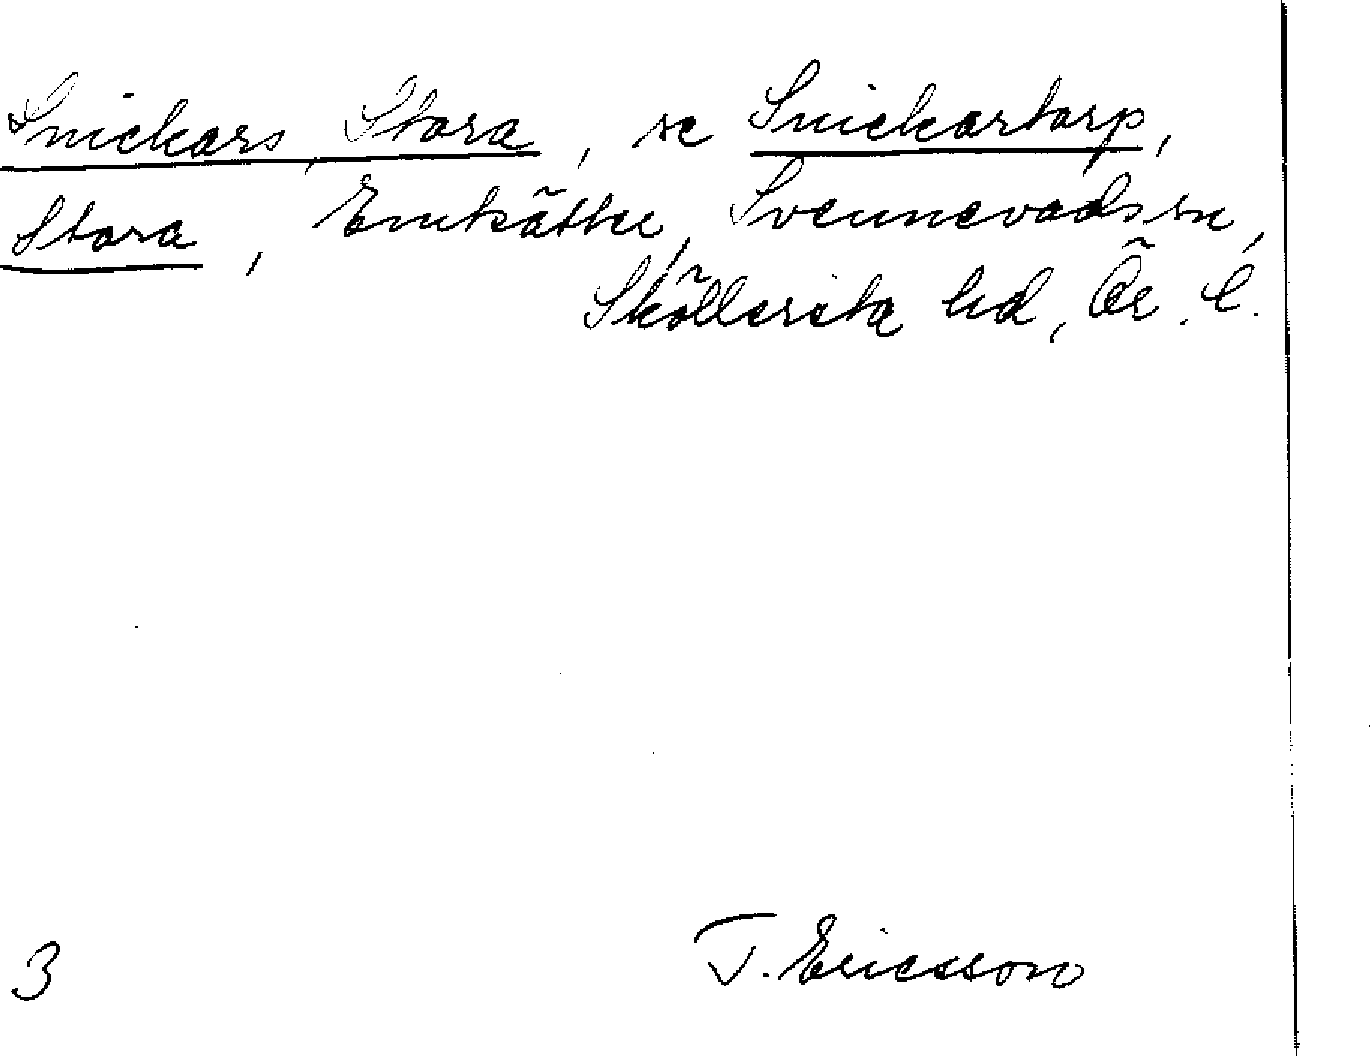 Snickars, Stora, se Snickartorp,
Stora, Enkätke, Svennevads sn,
Sköllersta hd, Ör. l.
3
T. Ericsson